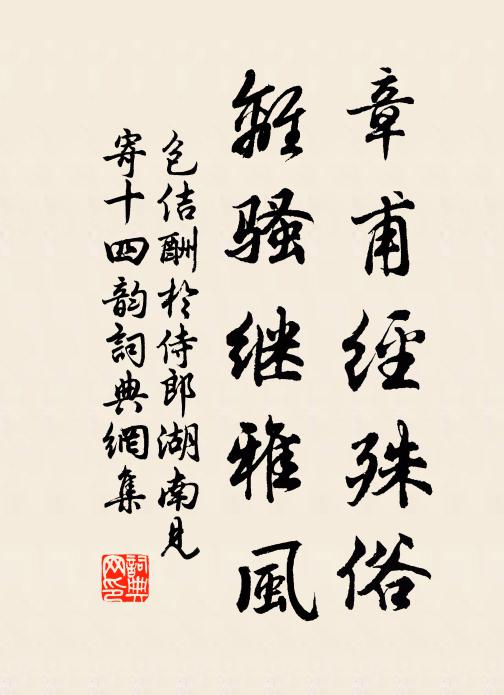 章甫經殊俗
離騷继雅風
包佶酬於侍郎湖南見
寄十四韵詞典網集
詞典网印